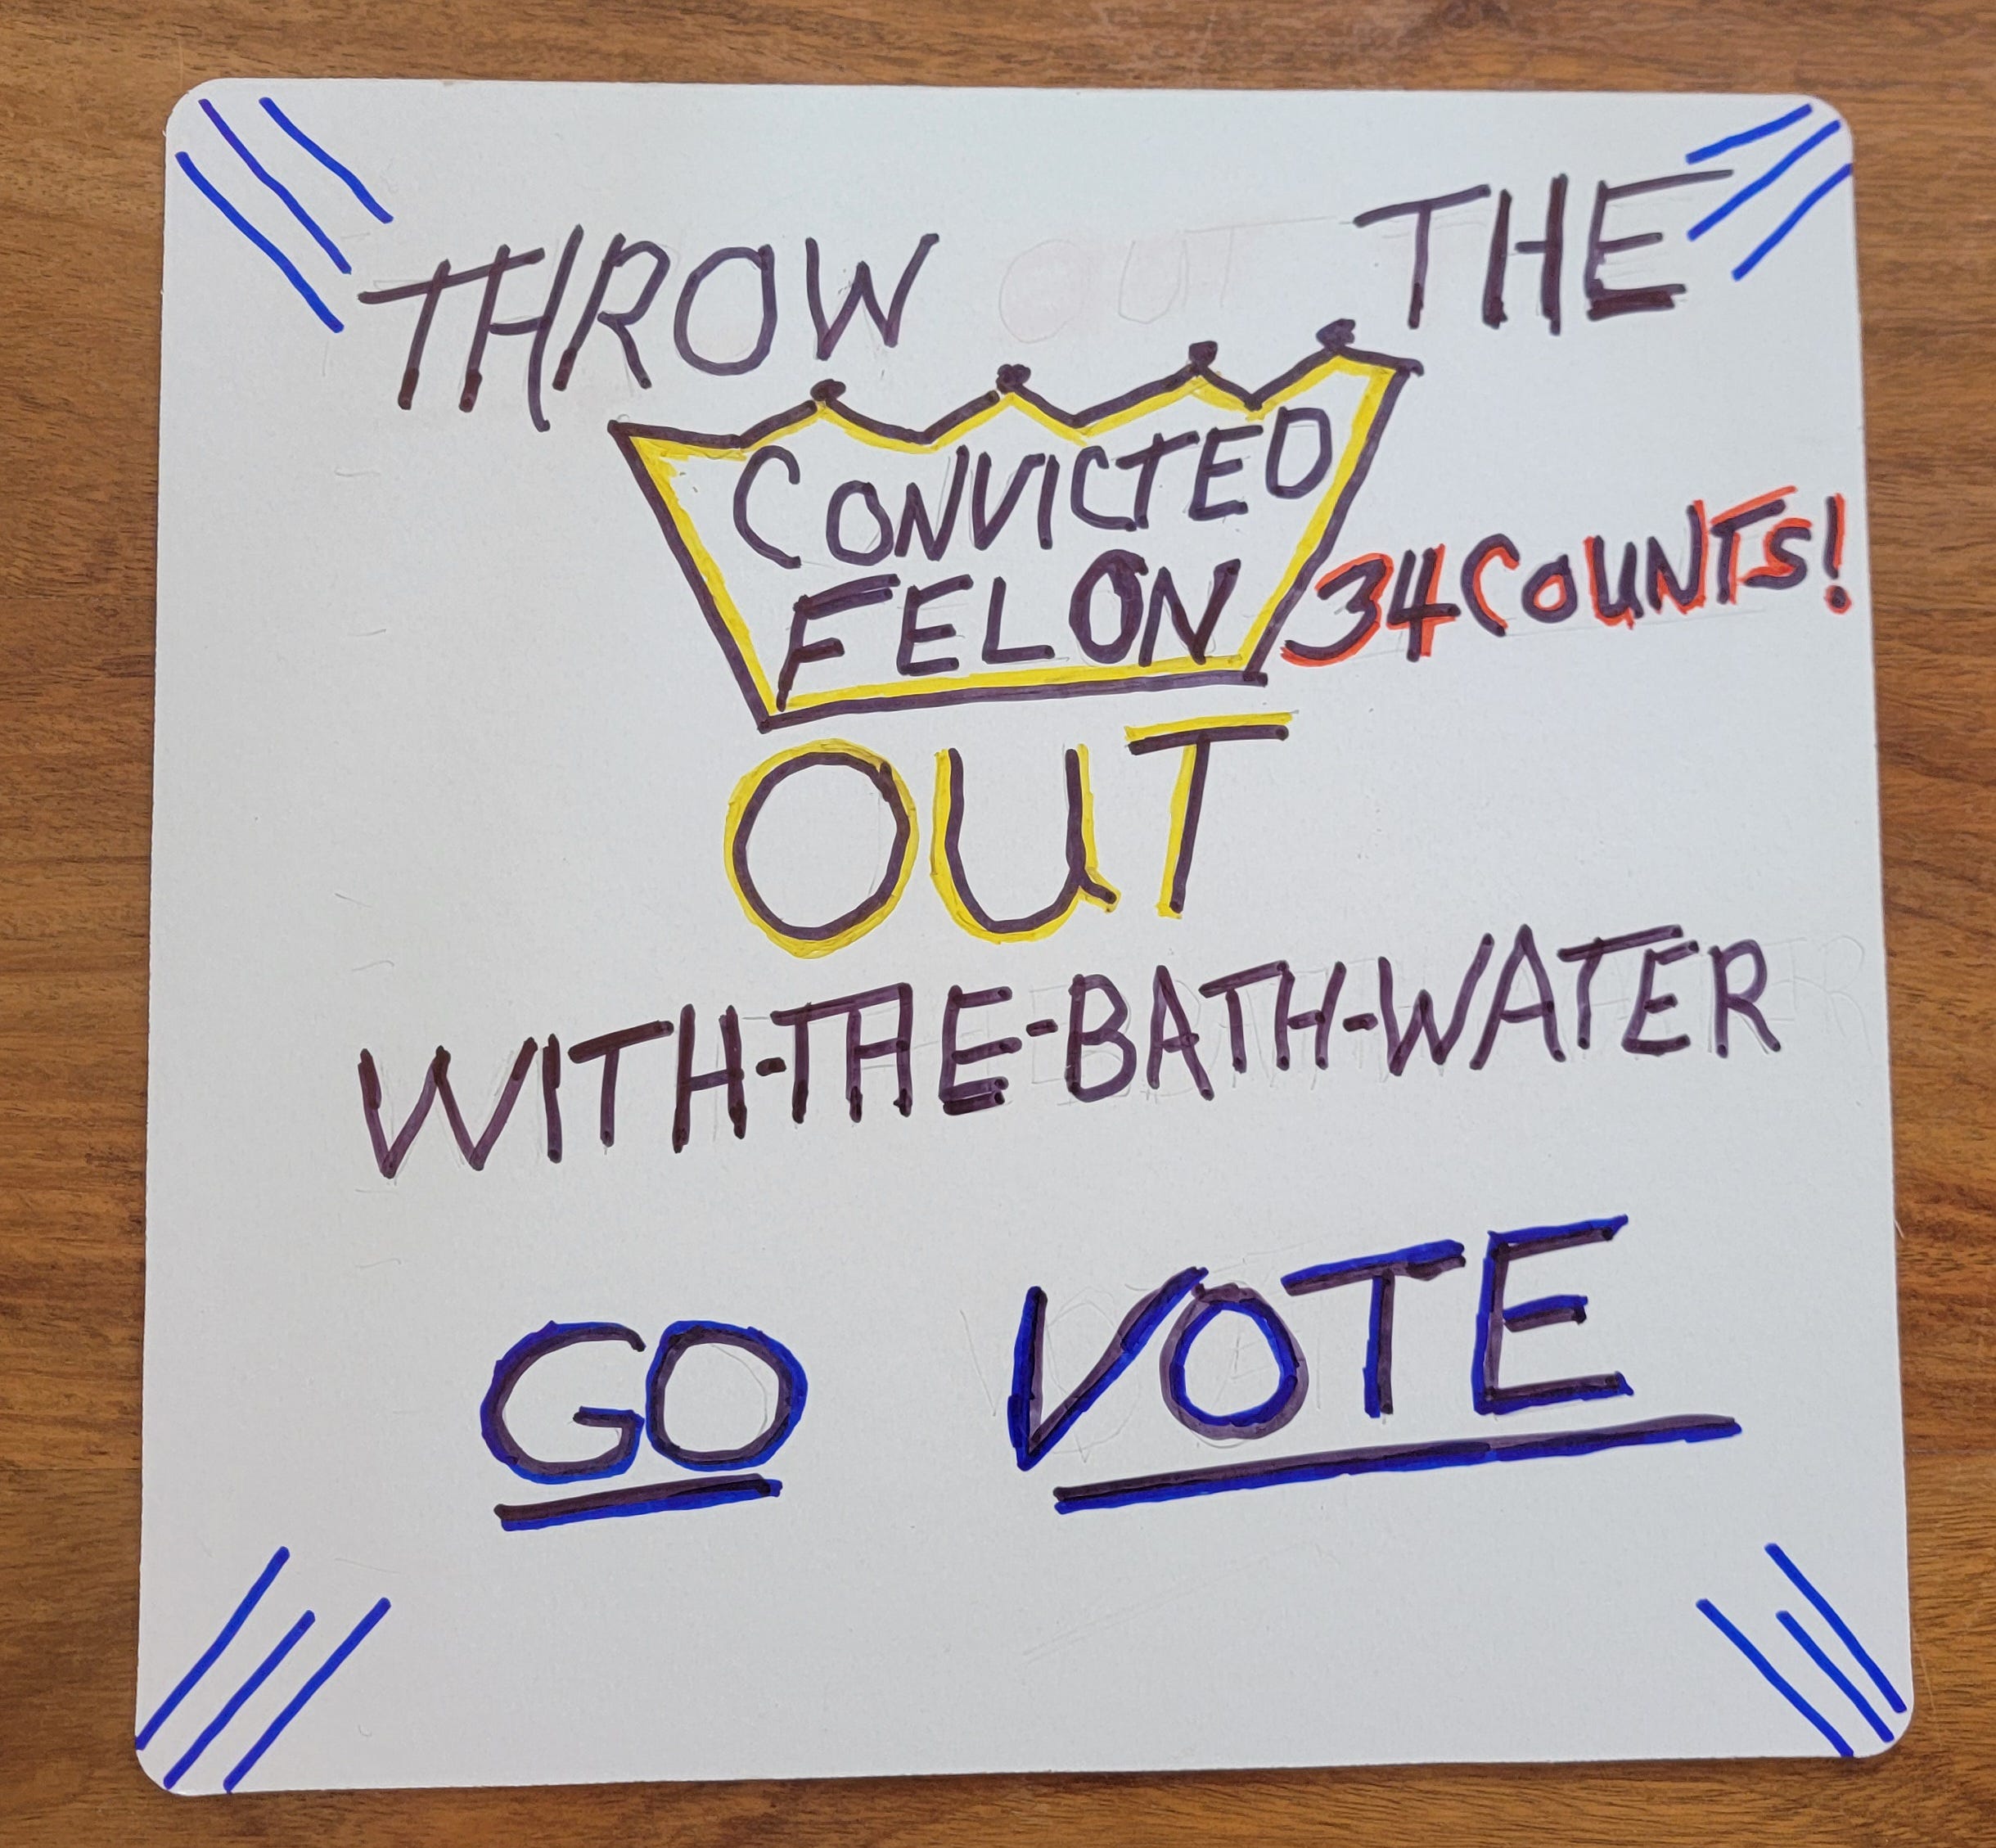 THROW THE
CONVICTED
FELON
34 COUNTS!
OUT
WITH-THE-BATH-WATER
GO VOTE